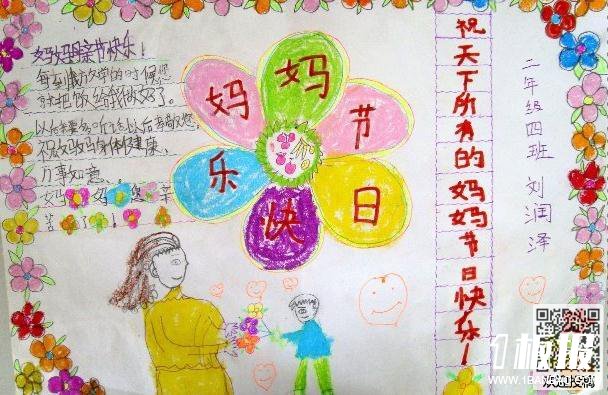 妈妈母亲节快乐！
每到我放学的时候您
就把饭给我做好了。
以后
祝妈妈身体健康、
万事如意、。
妈妈
苦了！
妈
妈
节
日
快
乐
祝天下所有的妈妈节日快乐！
二年级四班 刘润泽
1板报
WWW.1BANBAO.COM
欢迎投稿